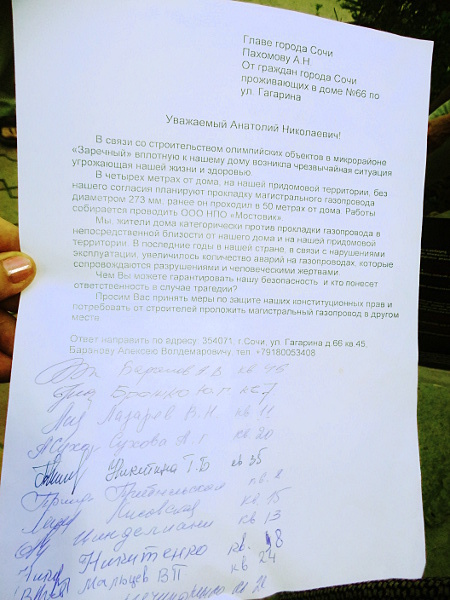 Главе города Сочи
Пахомову А.Н.
От граждан города Сочи
проживающих в доме №66 по
ул. Гагарина
Уважаемый Анатолий Николаевич!
В связи со строительством олимпийских объектов в микрорайоне
«Заречный» вплотную к нашему дому возникла чрезвычайная ситуация
угрожающая нашей жизни и здоровью.
В четырех метрах от дома, на нашей придомовой территории, без
нашего согласия планируют прокладку магистрального газопровода
диаметром 273 мм, ранее он проходил в 50 метрах от дома. Работы
собирается проводить ООО НПО «Мостовик».
Мы, жители дома категорически против прокладки газопровода в
непосредственной близости от нашего дома и на нашей придомовой
территории. В последние годы в нашей стране, в связи с нарушениями
эксплуатации, увеличилось количество аварий на газопроводах, которые
сопровождаются разрушениями и человеческими жертвами.
Чем Вы можете гарантировать нашу безопасность и кто понесет
ответственность в случае трагедии?
Просим Вас принять меры по защите наших конституционных прав и
потребовать от строителей проложить магистральный газопровод в другом
месте.
Ответ направить по адресу: 354071, г.Сочи, ул. Гагарина д.66 кв.45,
Баранову Алексею Волдемаровичу, тел. +79180053408
Баранов А В кв 45
кв 7
Лазарев В.Н кв 11
Сухова А. Г кв 20
Никитина Г.Б кв 35
кв. 2
кв 15
кв 13
Никитенко кв. 18
Мальцев ВП кв 24